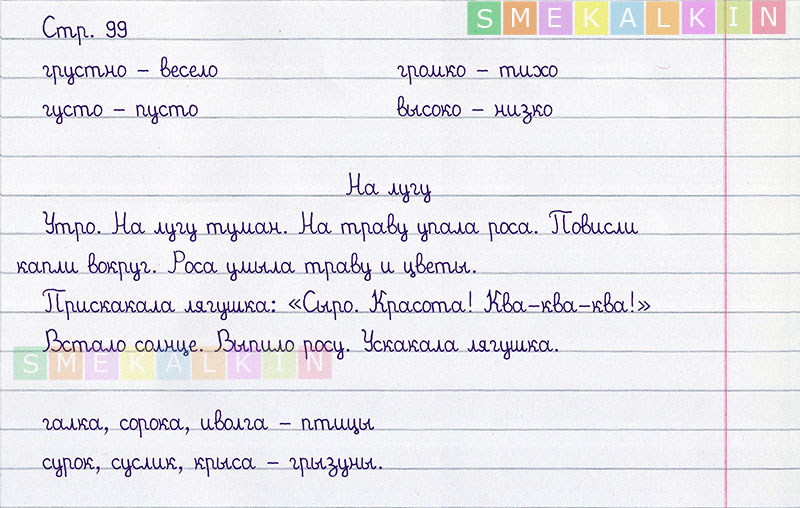 SMEKALKIN
Стр. 99
грустно – весело громко – тихо
густо – пусто высоко – низко
На лугу
Утро. На лугу туман. На траву упала роса. Повисли
капли вокруг. Роса умыла траву и цветы.
Прискакала лягушка: «Сыро. Красота! Ква-ква-ква!»
Встало солнце. Выпило росу. Ускакала лягушка.
SMEKALKIN
галка, сорока, иволга – птицы
сурок, суслик, крыса – грызуны.